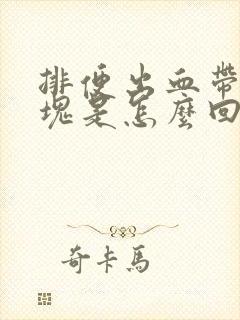 排便出血帶
塊是怎麼回
奇卡馬